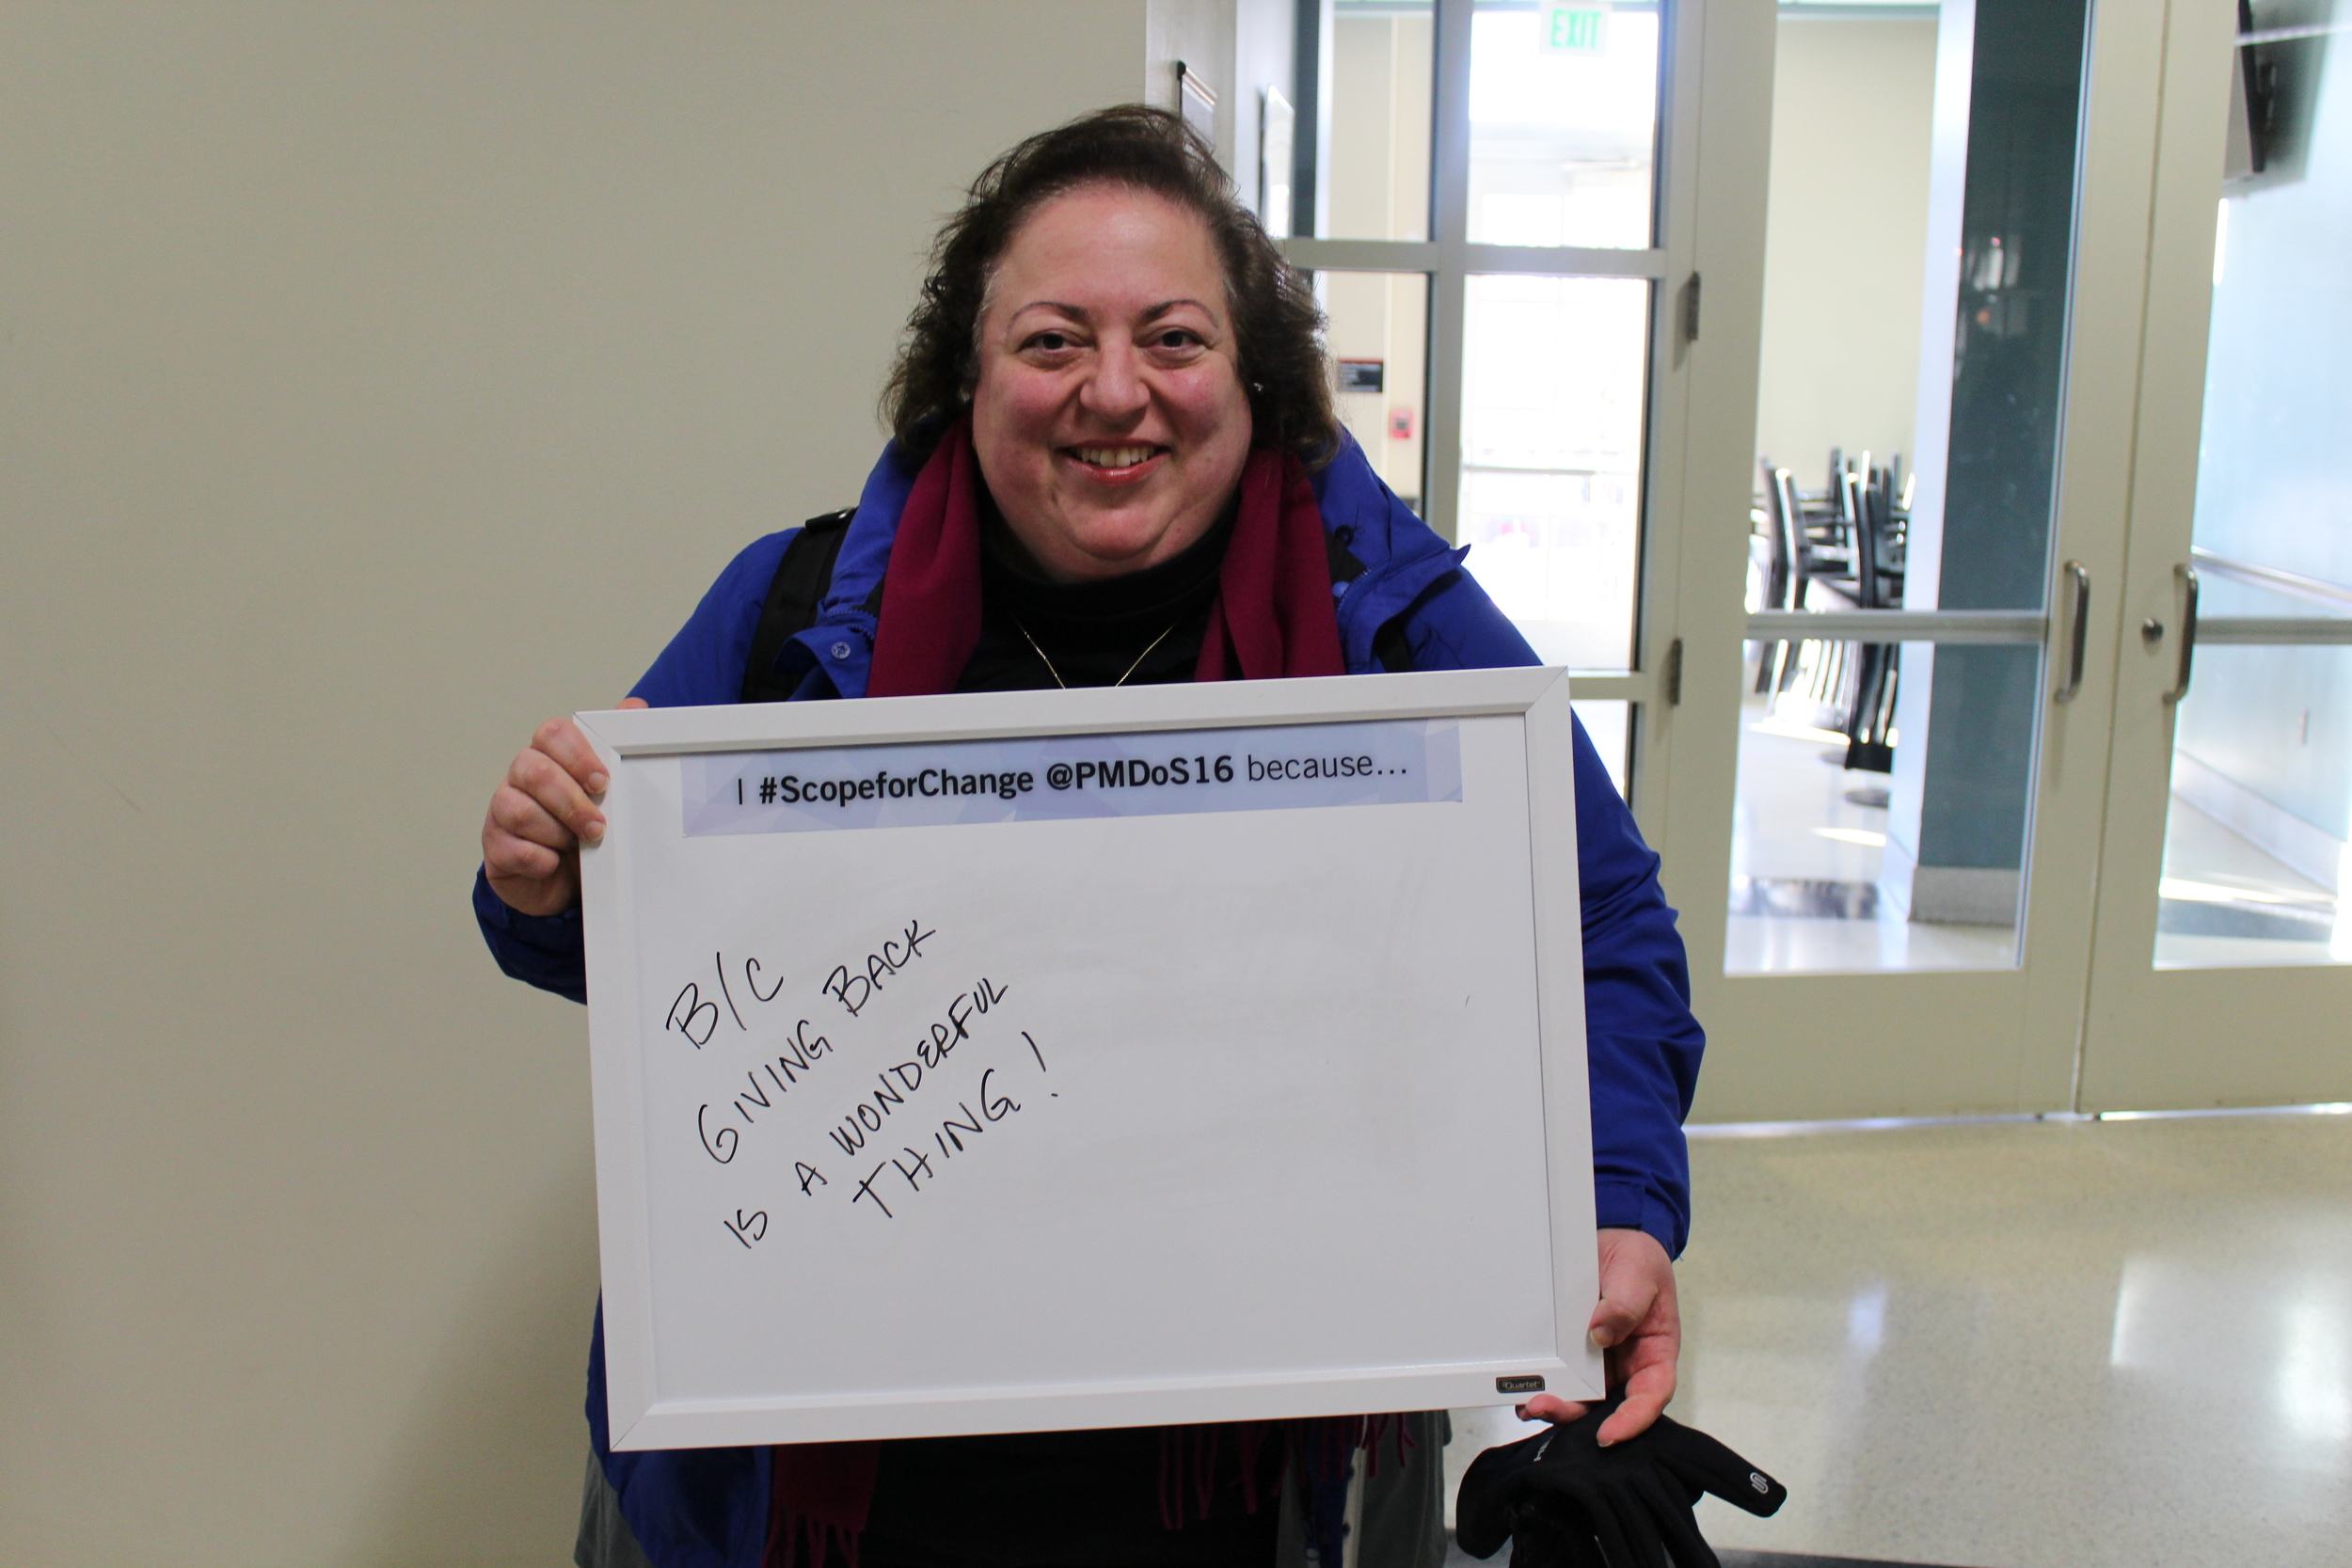 EXIT
I #ScopeforChange @PMDoS16 because...
B/C
GIVING BACK
IS A WONDERFUL
THING!
Quartet